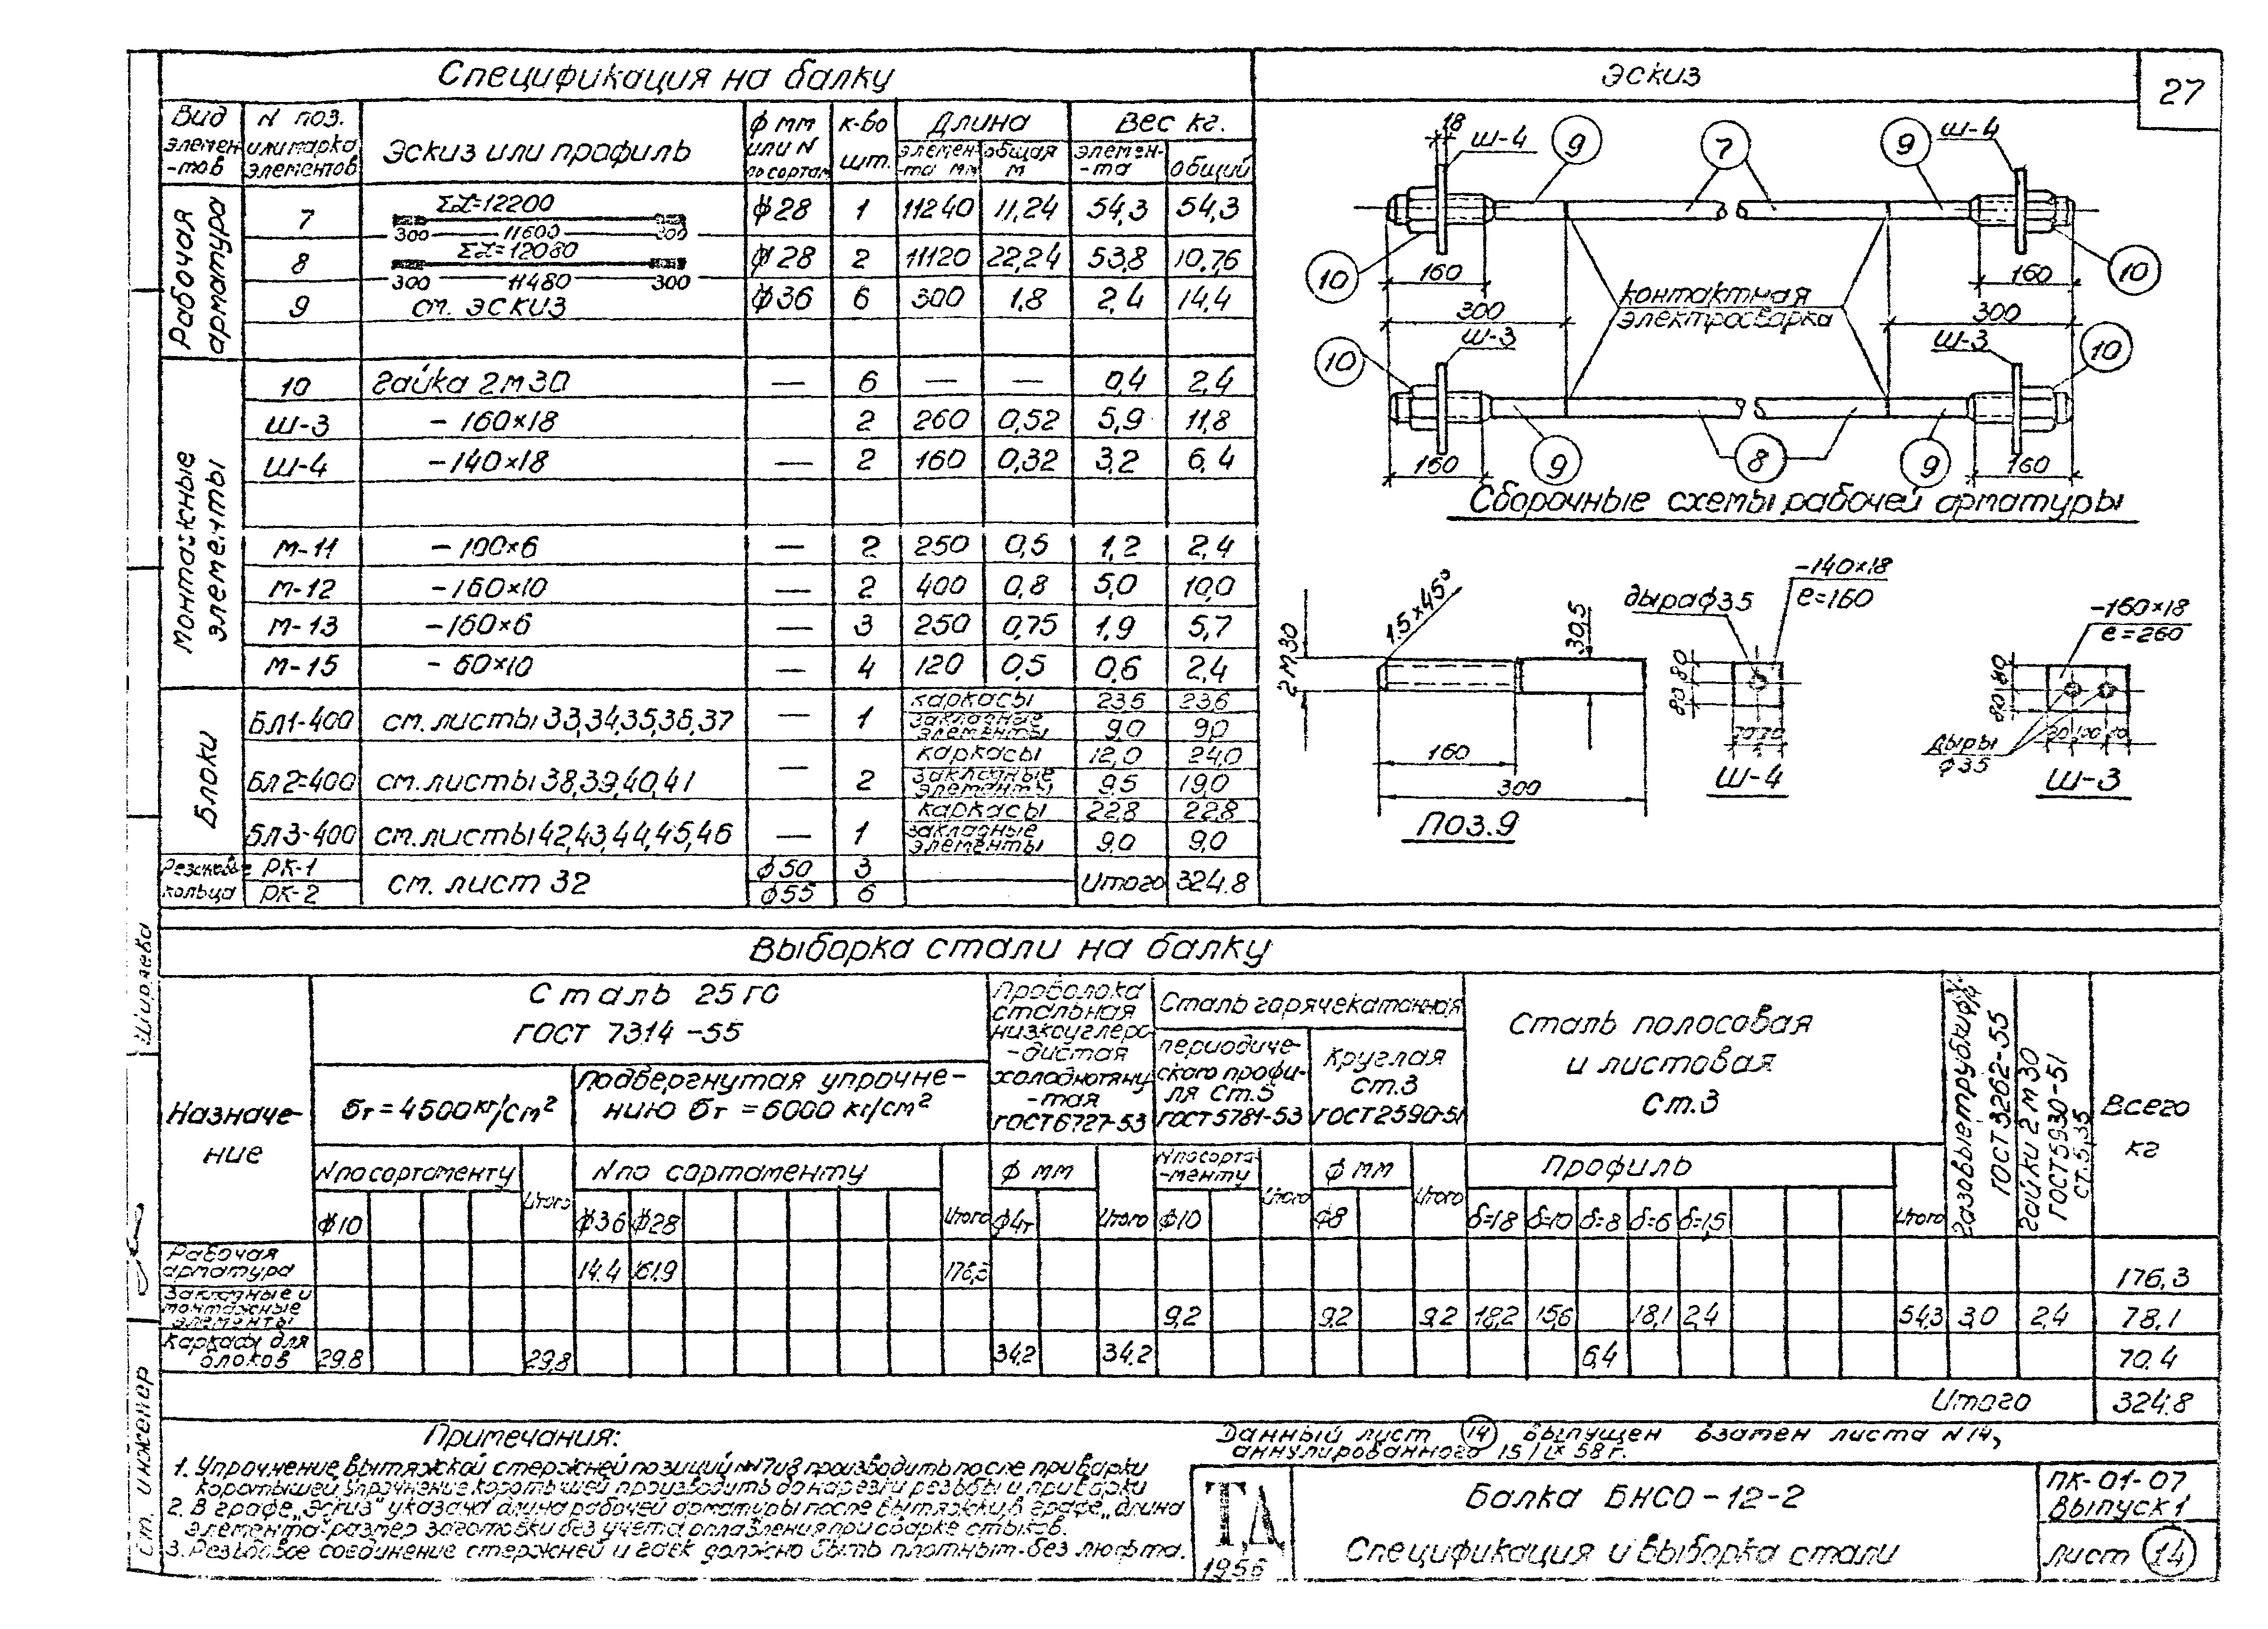 Спецификация на балку
Эскиз
27
Вид элемен-тов
N поз. или марка элементов
Эскиз или профиль
ф мм или N по сортам
к-во шт.
Длина
элемен-та мм
общая м
Вес кг.
элемен-та
общий
Рабочая арматура
7 Σℒ=12200 300 11600 300 ф28 1 11240 11,24 54,3 54,3
8 Σℒ=12080 300 11480 300 ф28 2 11120 22,24 53,8 10,76
9 см. эскиз ф36 6 300 1,8 2,4 14,4
Монтажные элементы
10 гайка 2М30 — 6 — — 0,4 2,4
Ш-3 -160×18 2 260 0,52 5,9 11,8
Ш-4 -140×18 — 2 160 0,32 3,2 6,4
М-11 -100×6 — 2 250 0,5 1,2 2,4
М-12 -160×10 — 2 400 0,8 5,0 10,0
М-13 -160×6 — 3 250 0,75 1,9 5,7
М-15 -60×10 — 4 120 0,5 0,6 2,4
Блоки
БЛ1-400 см. листы 33,34,35,36,37 — 1
каркасы 23,6 23,6
закладные элементы 9,0 9,0
БЛ2=400 см. листы 38,39,40,41 — 2
каркасы 12,0 24,0
закладные элементы 9,5 19,0
БЛ3-400 см. листы 42,43,44,45,46 — 1
каркасы 22,8 22,8
закладные элементы 9,0 9,0
Резиновые кольца
РК-1 ф50 3
см. лист 32
РК-2 ф55 6
Итого 324.8
18 Ш-4 9 7 9 Ш-4
10 160 160 10
300 контактная электросварка 300
10 Ш-3 Ш-3 10
160 9 8 9 160
Сборочные схемы рабочей арматуры
2М30
1.5×45°
30,5
160
300
Поз.9
дыра ф35
-140×18
е=160
80 80
70 70
Ш-4
-160×18
е=260
80 80
80 100 80
дыры ф35
Ш-3
Выборка стали на балку
Назначе-ние
Сталь 25ГС
ГОСТ 7314-55
бт=4500кг/см²
Подвергнутая упрочне-
нию бт=6000 кг/см²
Проволока стальная низкоуглеро-дистая холоднотяну-тая ГОСТ 6727-53
Сталь горячекатанная
периодиче-ского профи-ля Ст.5 ГОСТ 5781-53
круглая ст.3 ГОСТ 2590-51
Сталь полосовая
и листовая
Ст.3
Газовые трубки ф 1/4" ГОСТ 3262-55
гайки 2М30 ГОСТ 5930-51 Ст.5,35
Всего кг
N по сортаменту Итого N по сортаменту Итого ф мм Итого N по сорта-менту Итого ф мм Итого Профиль Итого
ф10 ф36 ф28 ф4т ф10 ф8 δ=18 δ=10 δ=8 δ=6 δ=1,5
Рабочая арматура 14.4 161.9 176,3 176,3
Закладные и монтажные элементы 9,2 9,2 9,2 18,2 15,6 18,1 2,4 54,3 3,0 2,4 78,1
Каркасы для блоков 29.8 29,8 34,2 34.2 6,4 70.4
Итого 324.8
Примечания:
1. Упрочнение вытяжкой стержней позиций №№ 7 и 8 производить после приварки
коротышей. Упрочнение коротышей производить до нарезки резьбы и приварки
2. В графе „Эскиз" указана длина рабочей арматуры после вытяжки, в графе „длина
элемента" размер заготовки без учета оплавления при сварке стыков.
3. Резьбовое соединение стержней и гаек должно быть плотным, без люфта.
Данный лист 14 выпущен взамен листа N14,
аннулированного 15/IX 58 г.
ТД
1956
Балка БНСО-12-2
Спецификация и выборка стали
ПК-01-07
Выпуск 1
лист 14
Ширяева
Ст. инженер